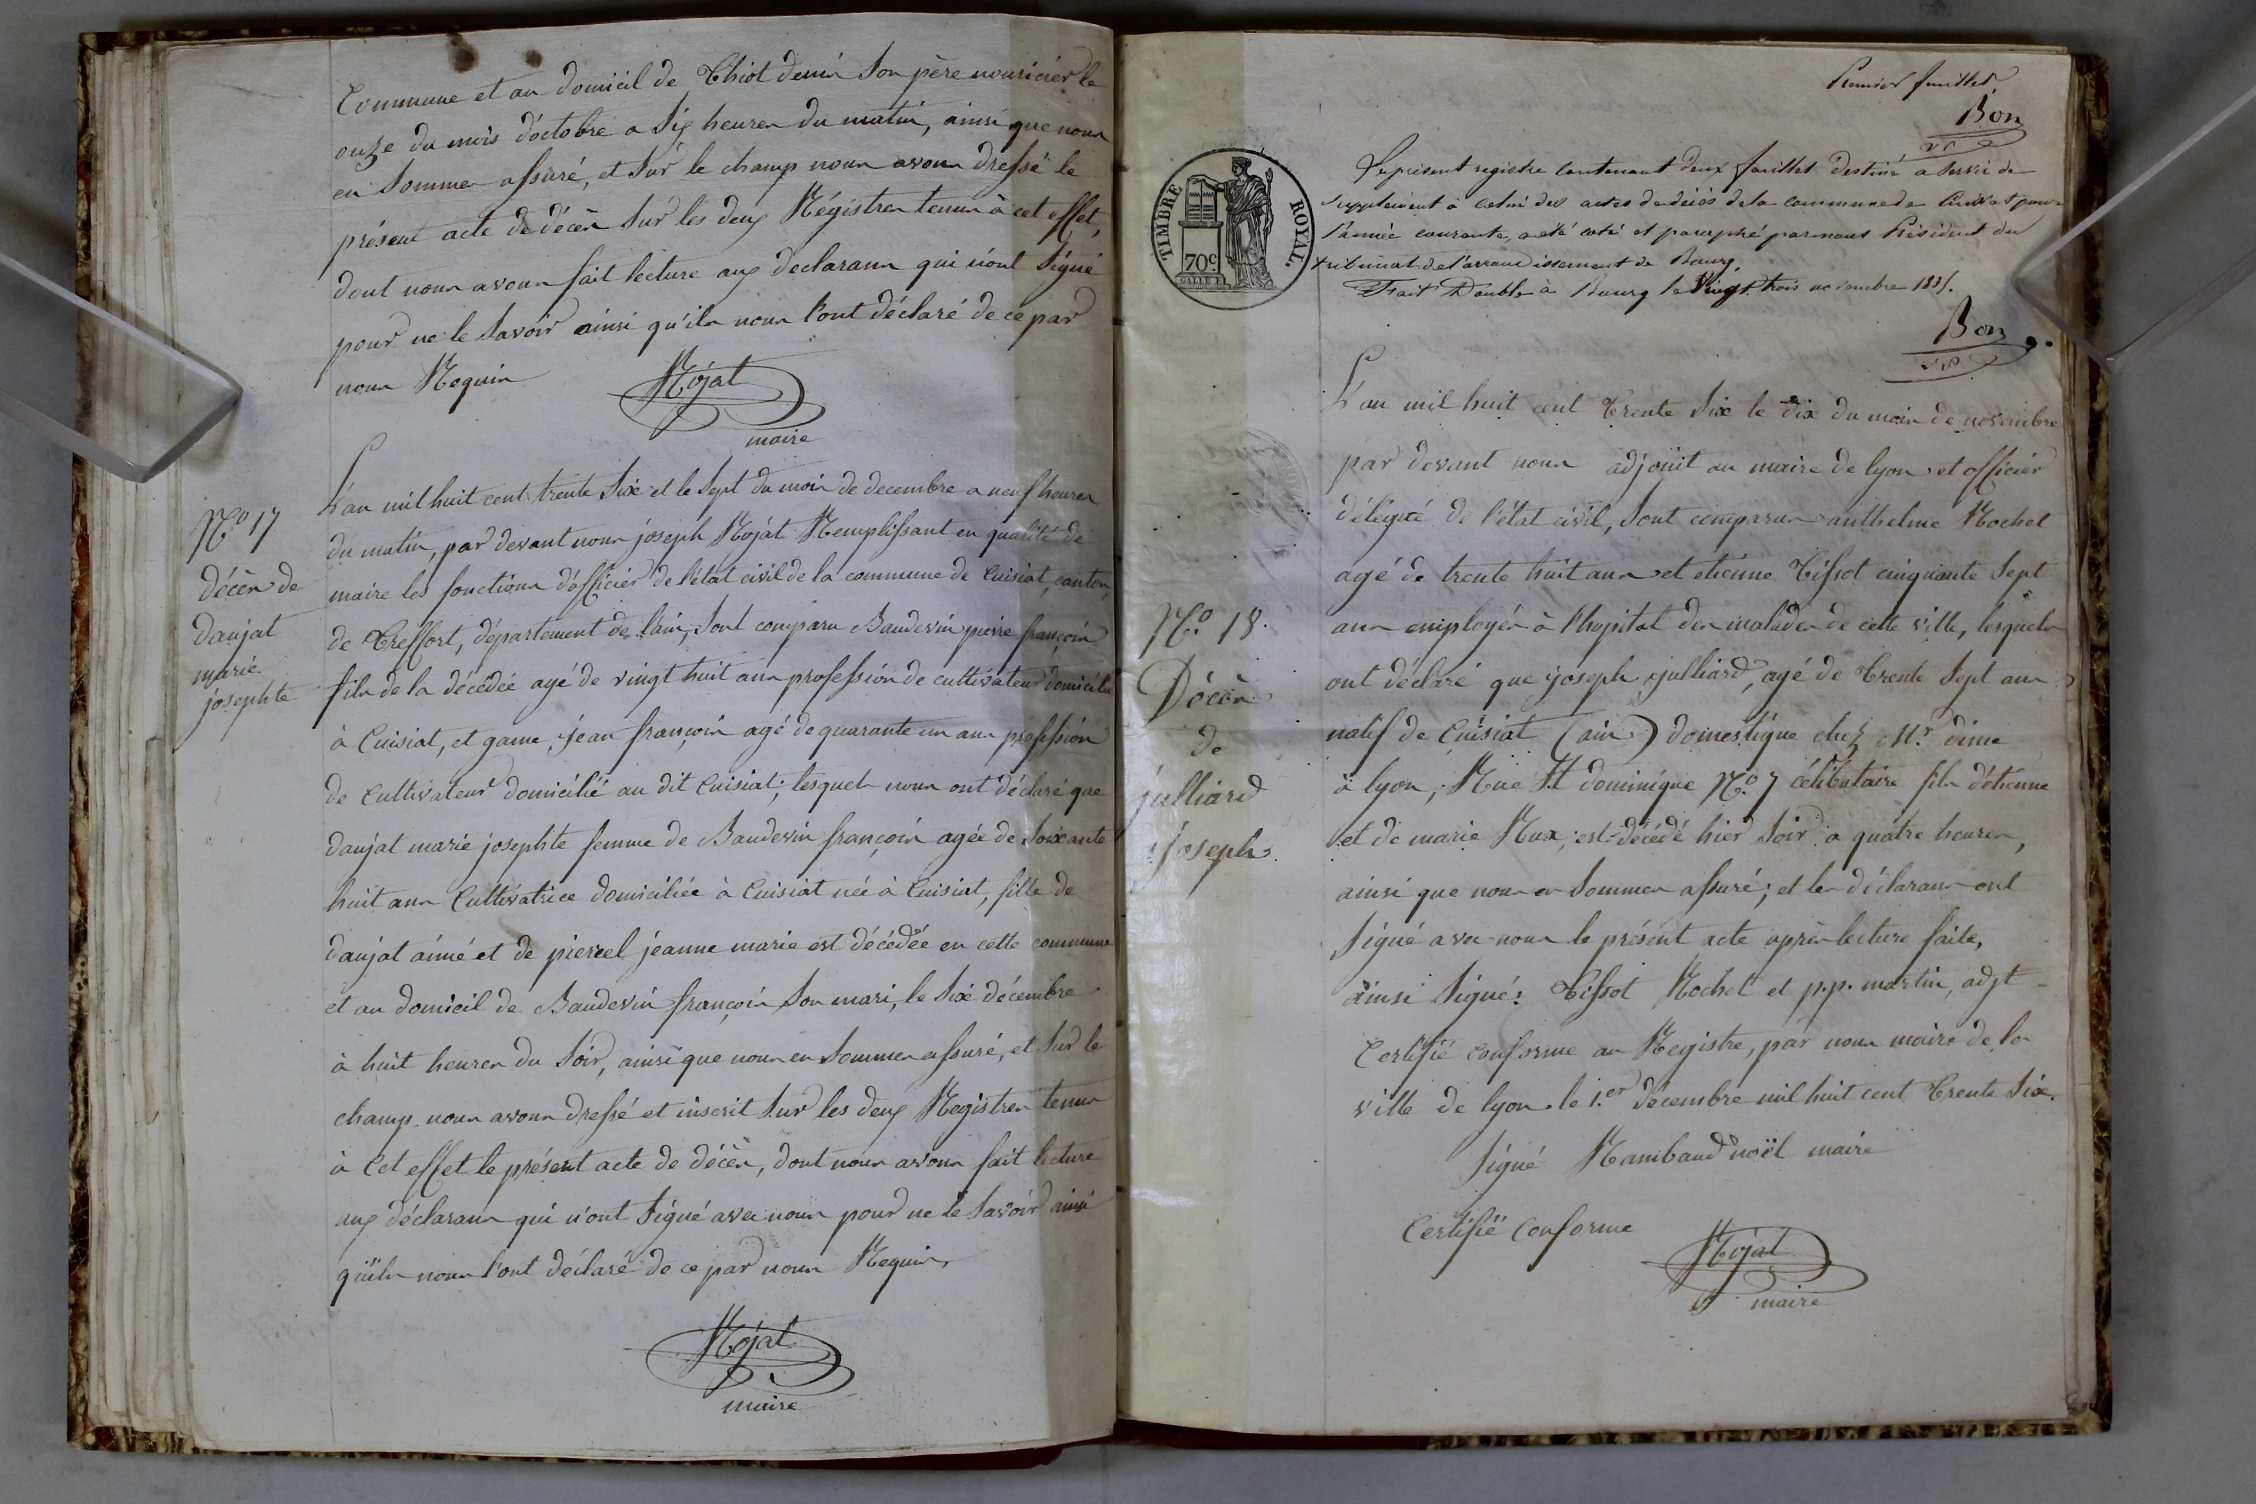 Commune et au domicil de Thiot denis Son père nouricier le
onze du mois d'octobre a Six heures du matin, ainsi que nous
en Sommes assuré, et Sur le champ nous avons dressé le
présent acte de décès Sur les deux Régistres tenus à cet effet,
dont nous avons fait lecture aux declarans qui n'ont Signé
pour ne le Savoir ainsi qu'ils nous l'ont déclaré de ce par
nous Requis
Rojat
maire
N.º 17
décès de
daujat
marie
josephte
L'an mil huit cent trente Six et le Sept du mois de decembre a neuf heures
du matin, par devant nous joseph Rojat Remplissant en qualité de
maire les fonctions d'officier de l'état civil de la commune de Cuisiat, canton,
de Treffort, département de l'ain, Sont comparu Baudevin pierre françois
fils de la décédée agé de vingt huit ans profession de cultivateur domicilié
à Cuisiat, et game jean françois agé de quarante un ans profession
de Cultivateur domicilié au dit Cuisiat; lesquels nous ont déclaré que
daujat marie josephte femme de Baudevin françois agée de Soixante
huit ans Cultivatrice domiciliée à Cuisiat née à Cuisiat, fille de
daujat aimé et de piercel jeanne marie est décédée en cette commune
et au domicil de Baudevin françois Son mari, le Six décembre
à huit heures du Soir, ainsi que nous en Sommes assuré, et Sur le
champ nous avons dressé et inscrit Sur les deux Registres tenus
à Cet effet le présent acte de décès, dont nous avons fait lecture
aux déclarans qui n'ont Signé avec nous pour ne le Savoir ainsi
qu'ils nous l'ont déclaré de ce par nous Requis,
Rojat
maire
Premier feuillet
Bon
TIMBRE ROYAL.
70c
Le présent registre contenant deux feuillets destiné a Servir de
Supplement à celui des actes de décès de la commune de Cuisiat pour
l'année courante, a été coté et paraphé par nous Président du
tribunal de l'arrondissement de Bourg,
Fait Double à Bourg le Vingt trois novembre 183
Bon
L'an mil huit cent Trente Six le dix du mois de novembre
par devant nous adjoint au maire de lyon et officier
délégué de l'état civil, Sont comparus anthelme Rochet
agé de trente huit ans et etienne Tissot cinquante Sept
ans employés à l'hopital des malades de cette ville, lesquels
ont déclaré que joseph julliard, agé de Trente Sept ans
natif de Cuisiat (ain) domestique chez Mr. dime
à lyon, Rue St dominique N.º 7 célibataire fils d'etienne
et de marie Rux, est décédé hier Soir a quatre heures,
ainsi que nous en Sommes assuré; et les déclarans ont
Signé avec nous le présent acte après lecture faite,
ainsi Signé: Tissot Rochet et p.p. martin, adjt
Certifié conforme au Registre, par nous maire de la
ville de lyon le 1.er décembre mil huit cent Trente Six.
Signé Rambaud noël maire
N.º 18.
Décès
de
julliard
joseph
Certifié Conforme
Rojat
maire